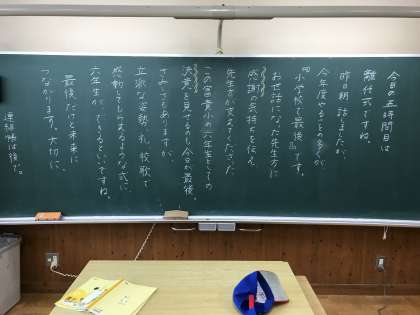 今日の五時間目は
離任式ですね。
昨日朝話しましたが、
今年度やることの多くが、
『小学校で最後』です。
お世話になった先生方に
感謝の気持ちを伝え、
先生方が支えてくださった
この富貴小の六年生としての
決意を見せるのも今日が最後。
さみしくもありますが、
立派な姿勢、礼、校歌で
感動してもらえるような式に
六年生ができるといいですね。
最後だけど未来に
つながります。大切に。
連絡帳は後だ。